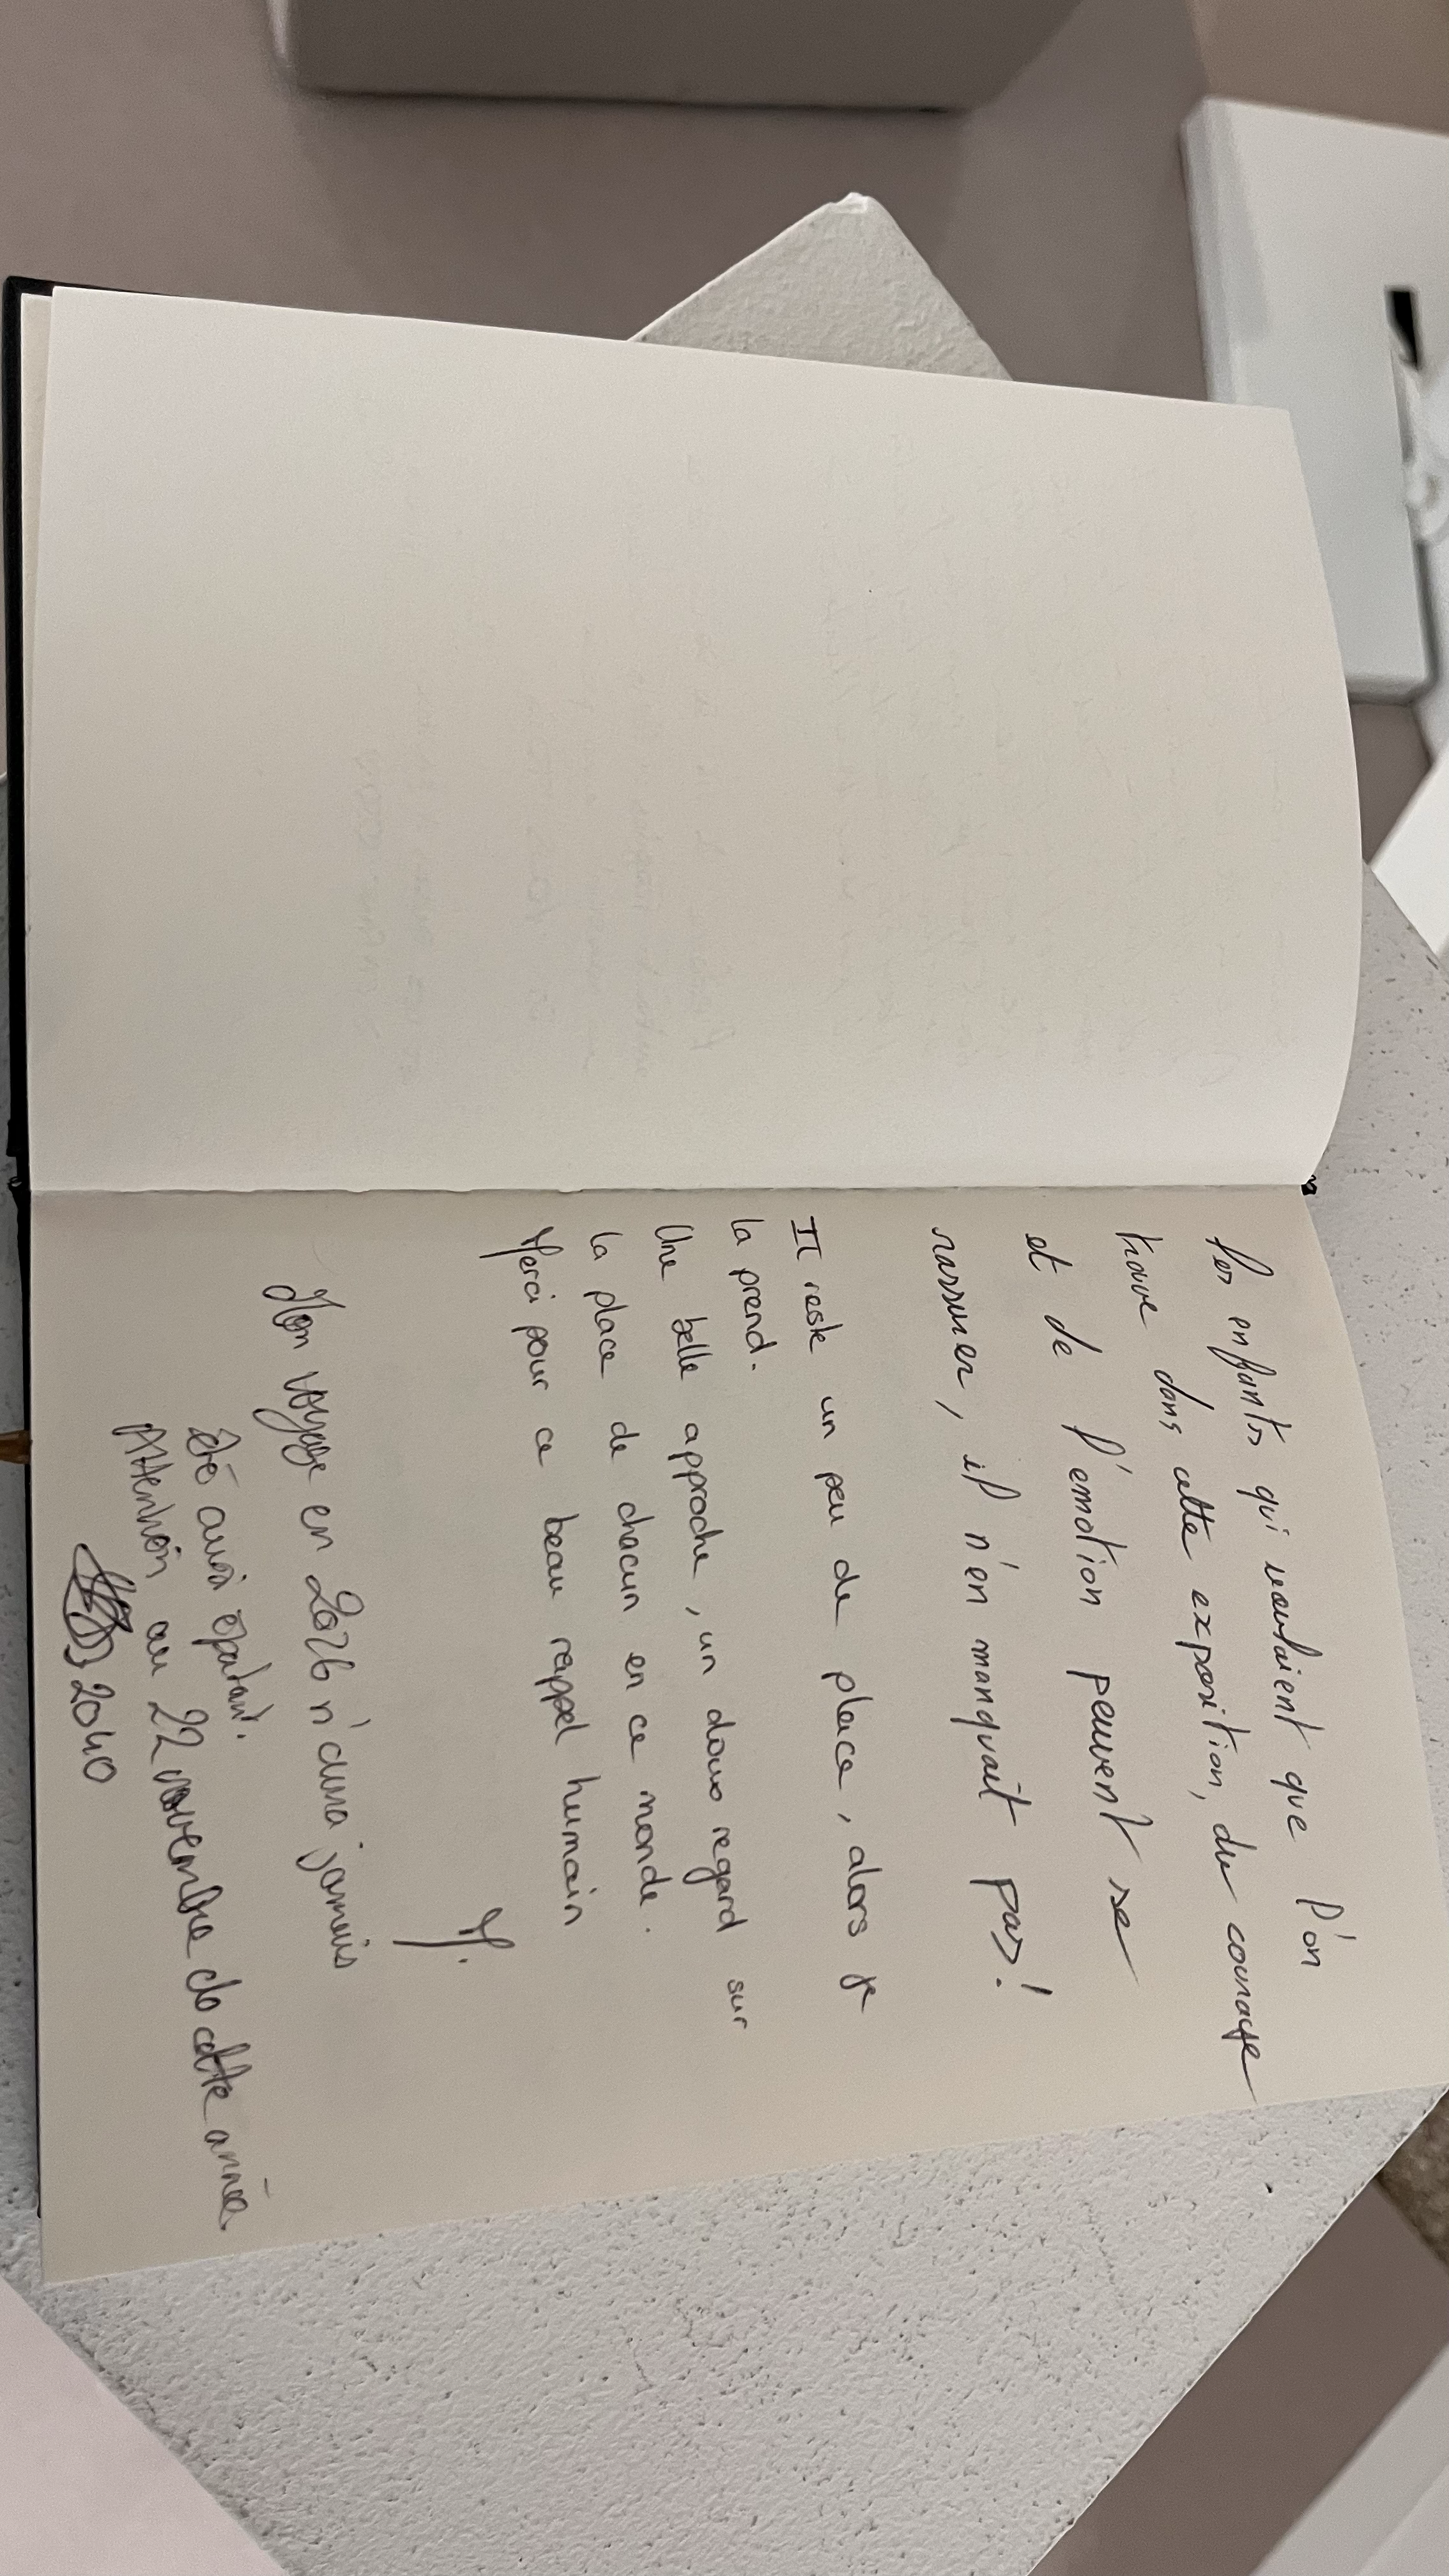 Les enfants qui voulaient que l'on
trouve dans cette exposition, du courage
et de l'emotion peuvent se
rassurer, il n'en manquait pas!
Il reste un peu de place, alors je
la prend.
Une belle approche, un doux regard sur
la place de chacun en ce monde.
Merci pour ce beau rappel humain
M.
Mon voyage en 2026 n'aura jamais
été aussi épatant.
Attention au 22 novembre de cette année
2040